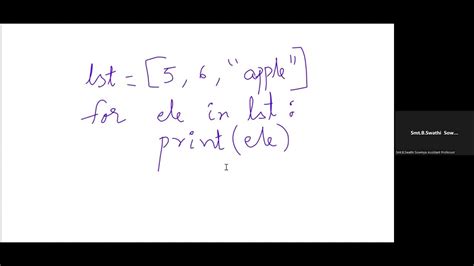 lst = [5, 6, "apple"]
for ele in lst :
print(ele)
Smt.B.Swathi Sow...
Smt.B.Swathi Sowmya Assistant Professor